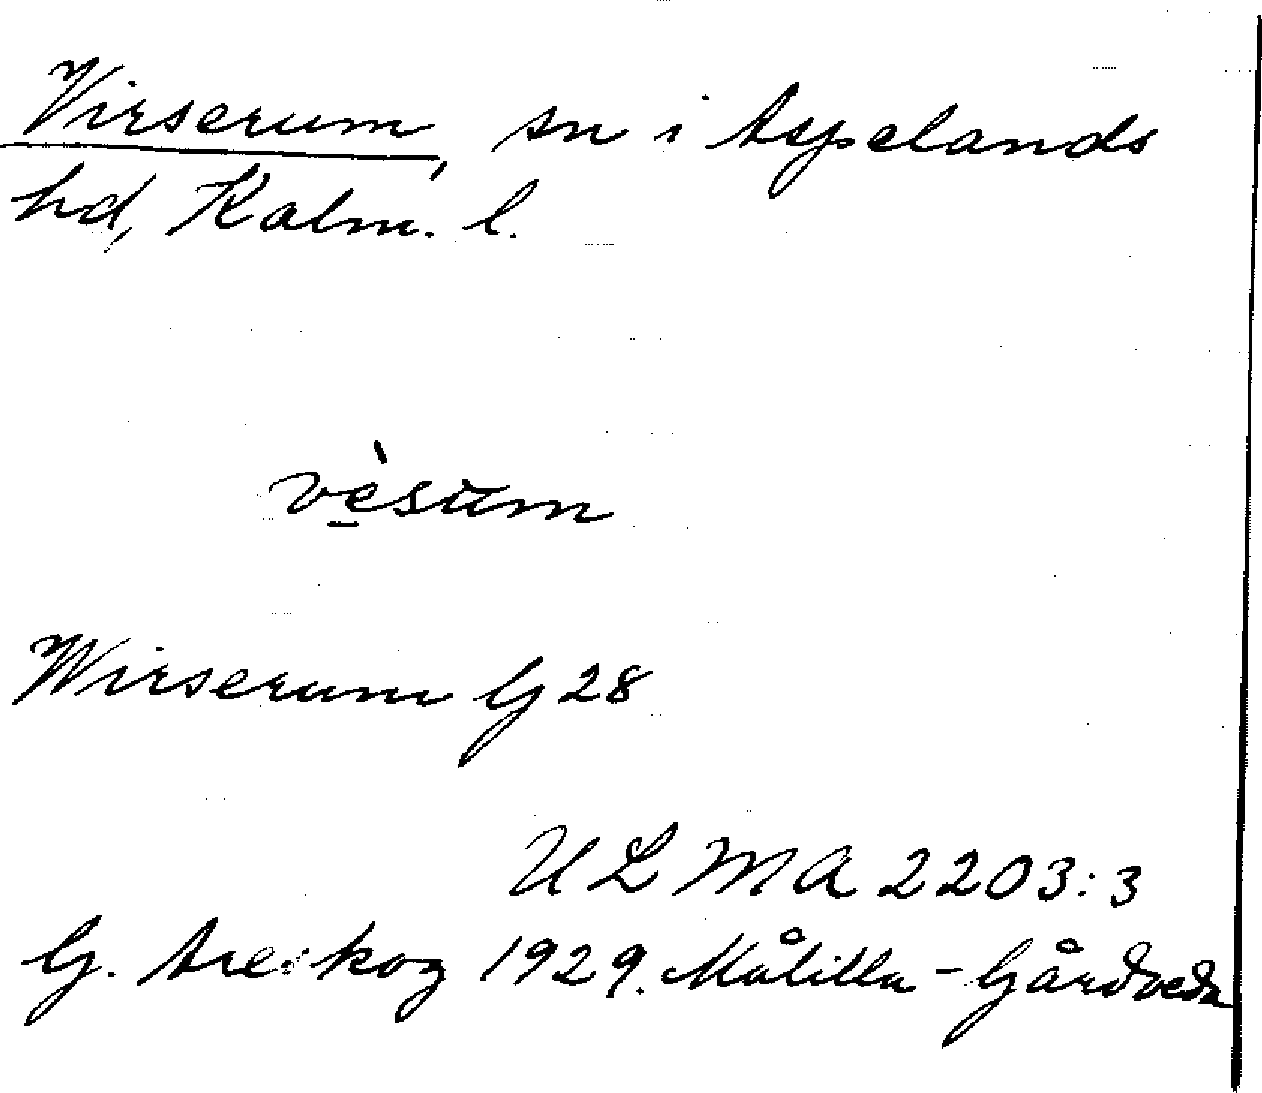 Virserum, sn i Aspelands
hd, Kalm. l.
vèsum
Wirserum G 28
ULMA 2203:3
G. Areskog 1929. Målilla-Gårdveda